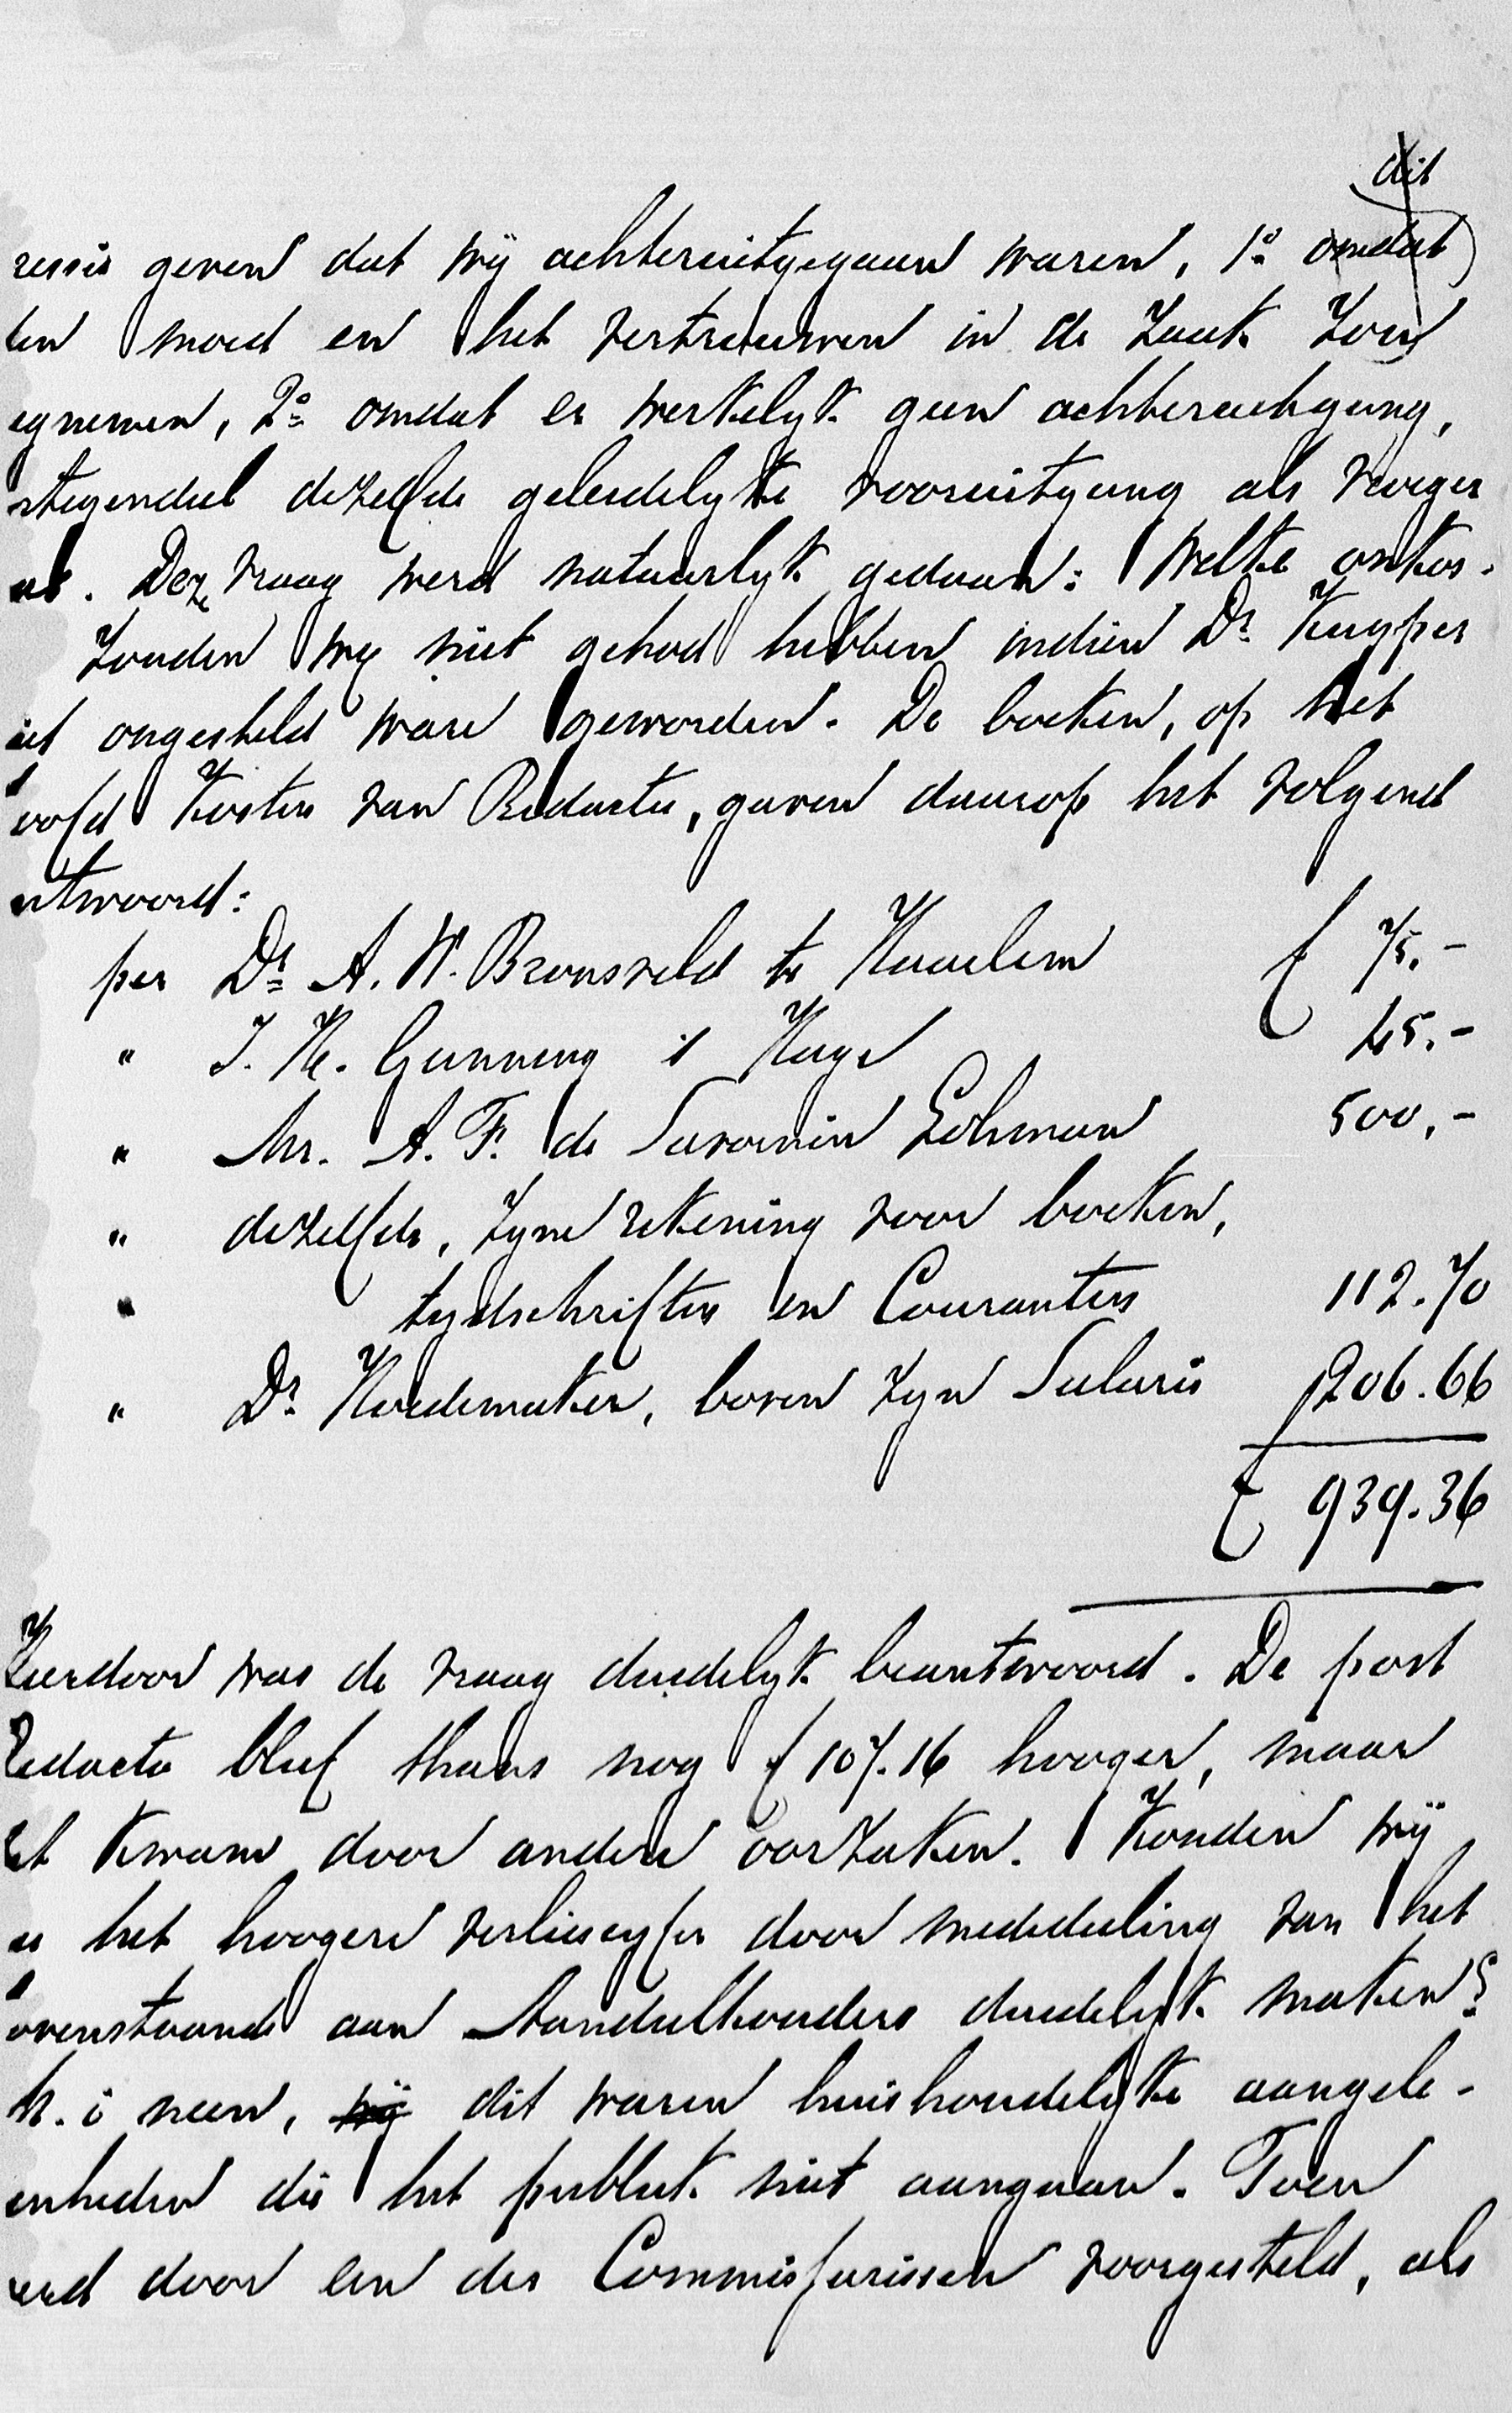 dit
ressie geven dat wij achteruitgegaan waren, 1º omdat
den moed en het vertrouwen in de zaak zou
egnemen, 2º omdat er werkelijk geen achteruitgang,
ntegendeel dezelfde geleidelijke vooruitgang als vroeger
as. Deze vraag werd natuurlijk gedaan: Welke onkos-
zouden wij niet gehad hebben indien Dr. Kuyper
iet ongesteld ware geworden. De boeken, op het
oofd Kosten van Redactie, gaven daarop het volgend
ntwoord:
per Dr. A. W. Bronsveld te Haarlem f 75.-
" J. H. Gunning 's Hage 45.-
" Mr. A. F. de Savornin Lohman 500.-
" dezelfde, zijne rekening voor boeken,
" tijdschriften en Couranten 112.70
" Dr. Hoedemaker, boven zijn Salaris 206.66
f 939.36
Hierdoor was de vraag duidelijk beantwoord. De post
Redactie bleef thans nog f 107.16 hooger, maar
et kwam door andere oorzaken. Konden wij
u het hoogere verliescijfer door mededeeling van het
ovenstaande aan Aandeelhouders duidelijk maken?
h. i neen, wij dit waren huishoudelijke aangele-
enheden die het publiek niet aangaan. Toen
erd door een der Commissarissen voorgesteld, als